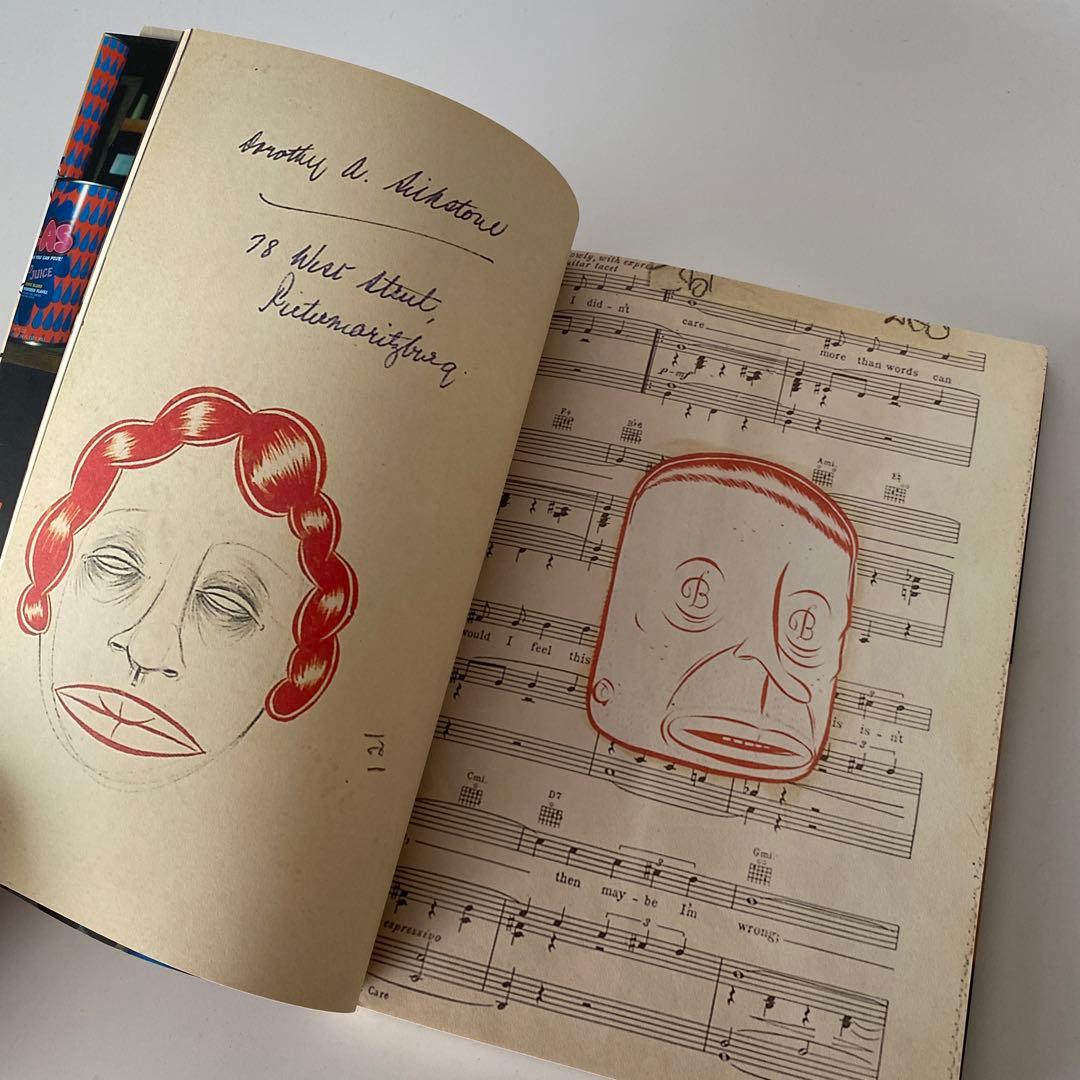 Dorothy A. Silkstone
78 West Street,
Pietermaritzburg.
121
AS
JUICE
owly, with expre
uitar tacet
I did - n't care
more than words can
p-mf
F+
B♭6
Ami.
E♭
would I feel this
is is - n't
3
3
Cmi.
D7
Gmi.
3
then may - be I'm wrong;
3
espressivo
Care
B
B